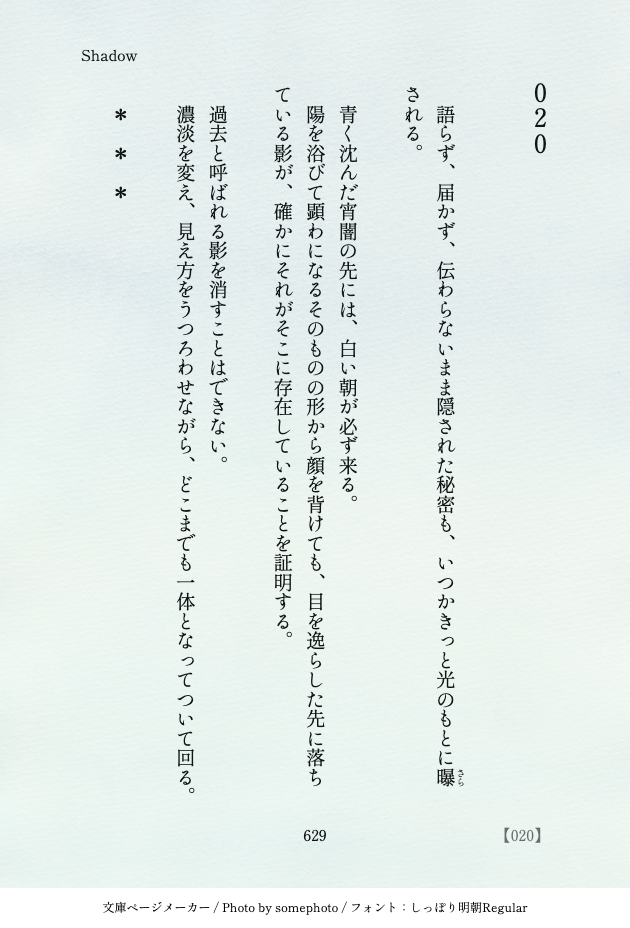 Shadow
020
語らず、届かず、伝わらないまま隠された秘密も、いつかきっと光のもとに曝
さら
される。
青く沈んだ宵闇の先には、白い朝が必ず来る。
陽を浴びて顕わになるそのものの形から顔を背けても、目を逸らした先に落ち
ている影が、確かにそれがそこに存在していることを証明する。
過去と呼ばれる影を消すことはできない。
濃淡を変え、見え方をうつろわせながら、どこまでも一体となってついて回る。
＊　＊　＊
629
【020】
文庫ページメーカー / Photo by somephoto / フォント：しっぽり明朝Regular